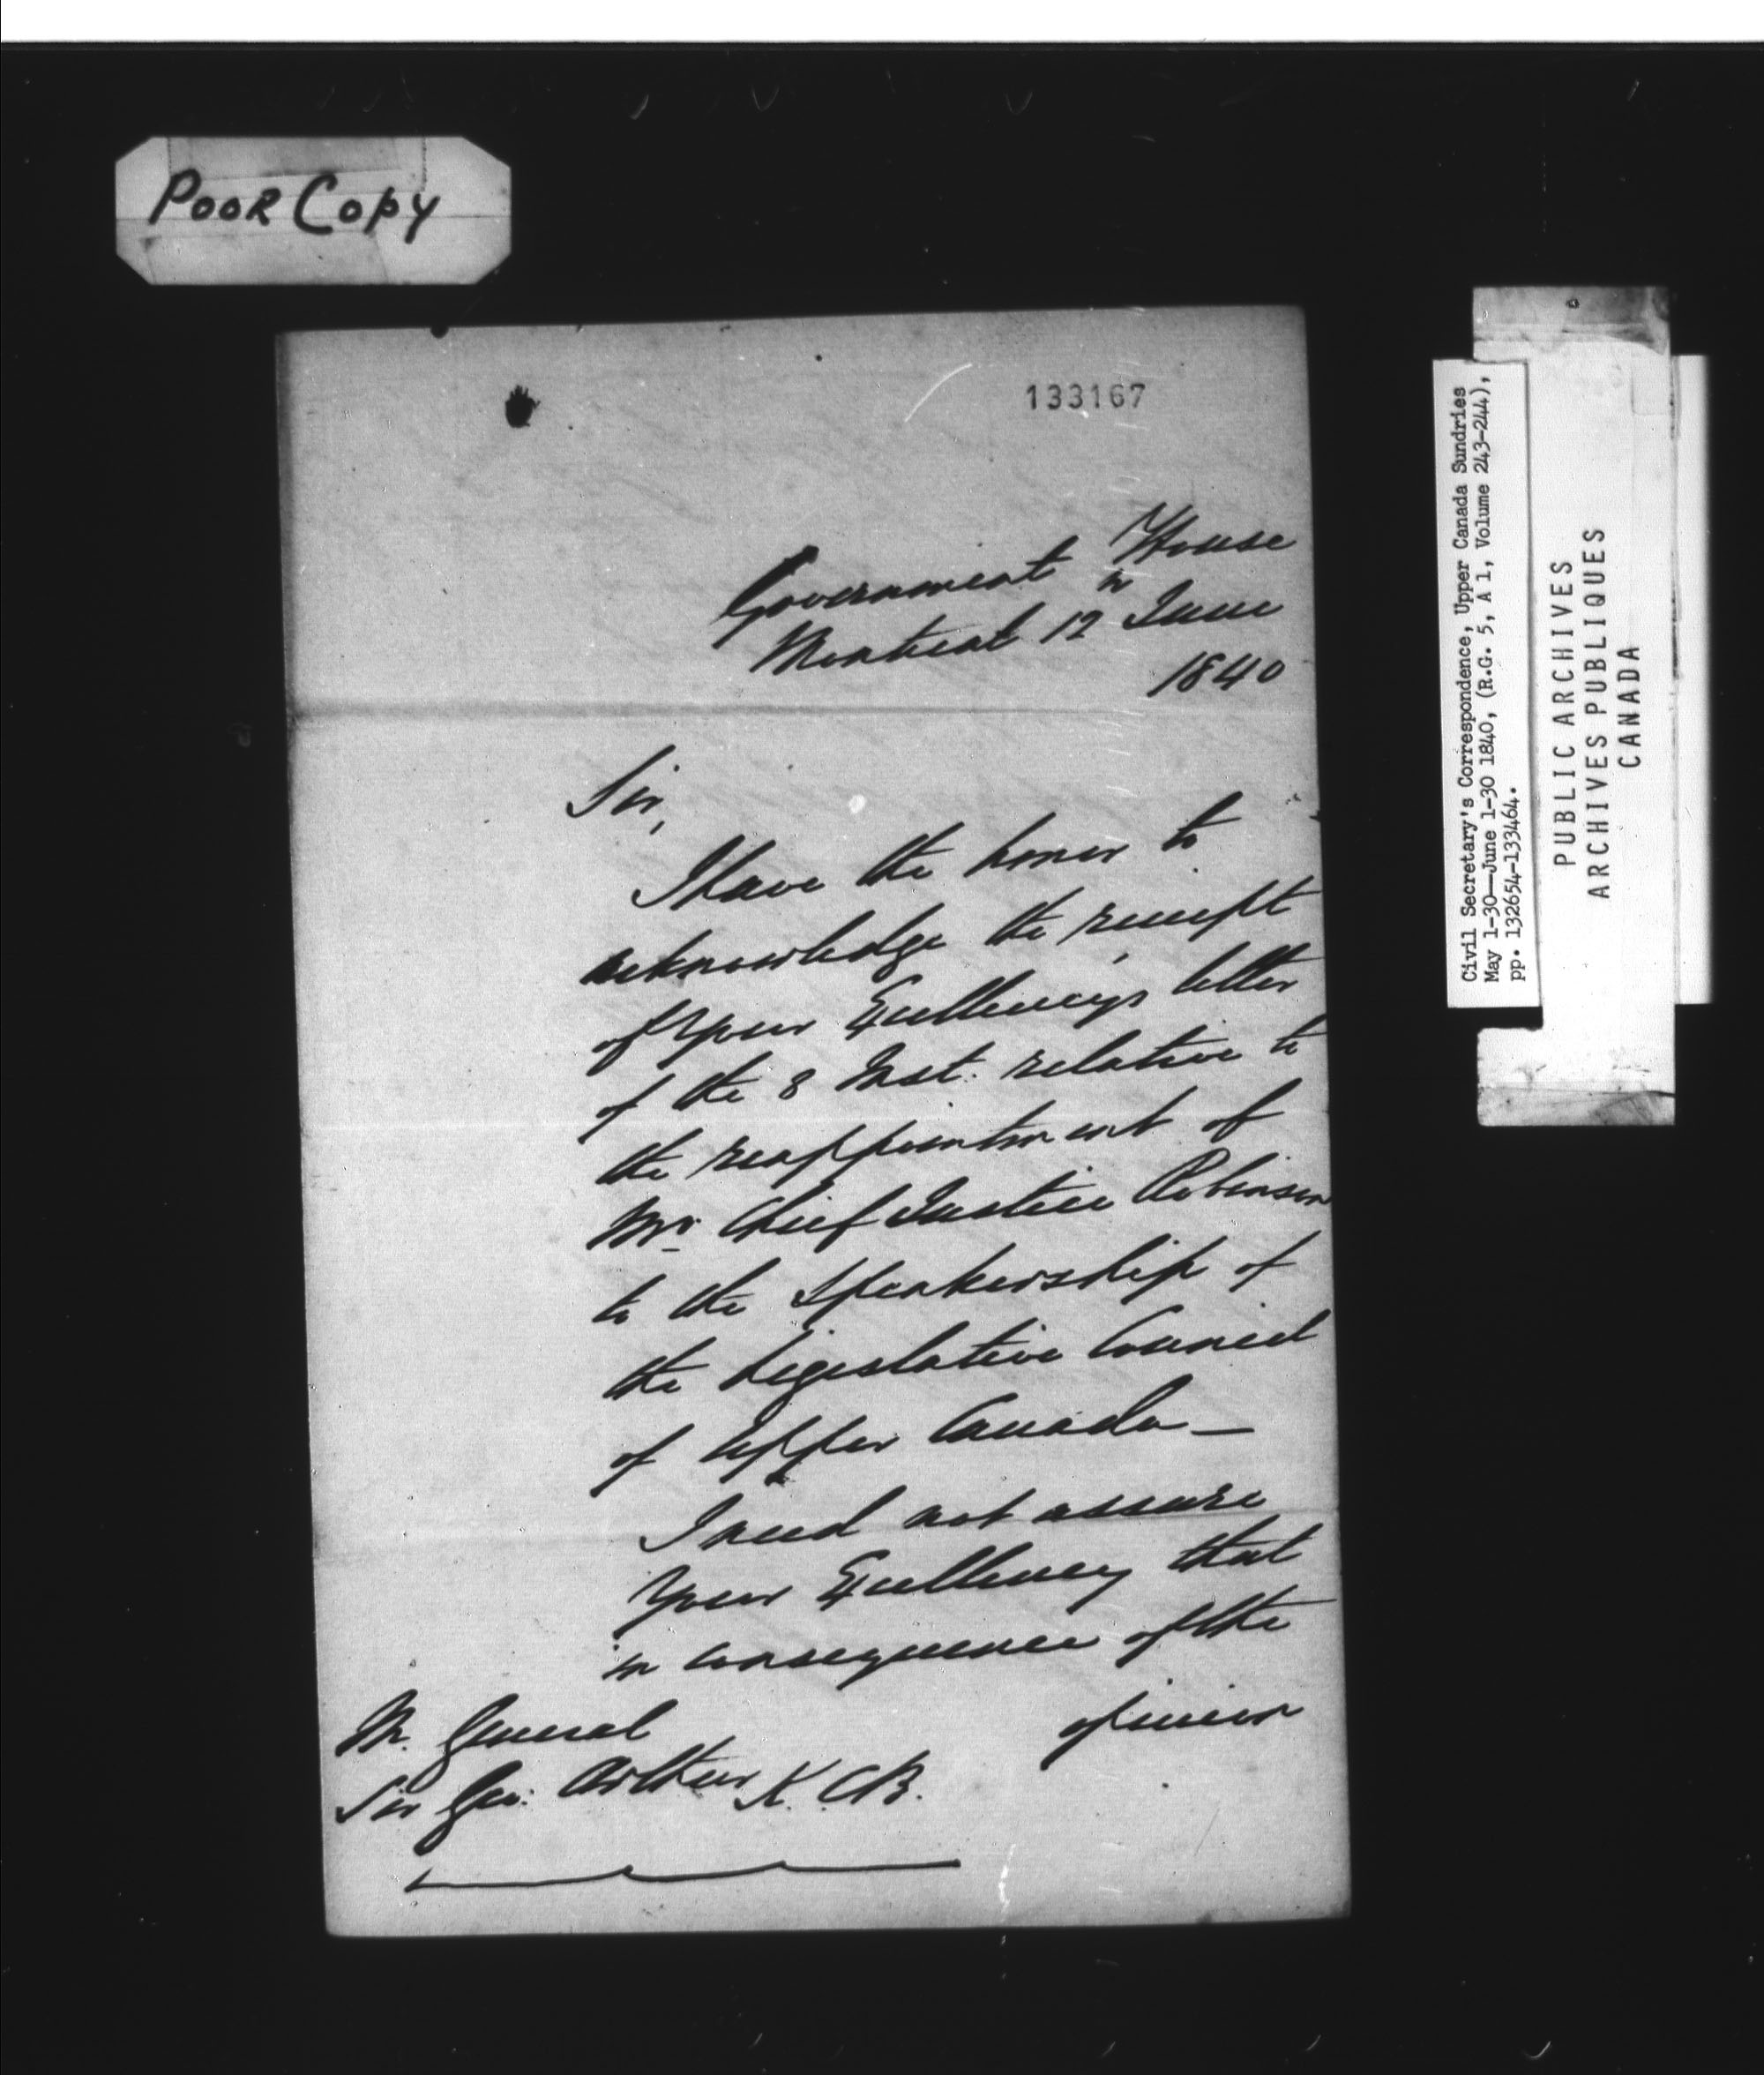 Poor Copy
133167
Government House
Montreal 12th June
1840
Sir,
I have the honor to
acknowledge the receipt
of Your Excellency's letter
of the 8 Inst. relative to
the reappointment of
Mr. Chief Justice Robinson
to the Speakership of
the Legislative Council
of Upper Canada —
I need not assure
Your Excellency that
in consequence of the
opinion
M. General
Sir Geo: Arthur K.C.B.
Civil Secretary's Correspondence, Upper Canada Sundries
May 1-30—June 1-30 1840, (R.G. 5, A 1, Volume 243-244),
pp. 132654-133464.
PUBLIC ARCHIVES
ARCHIVES PUBLIQUES
CANADA